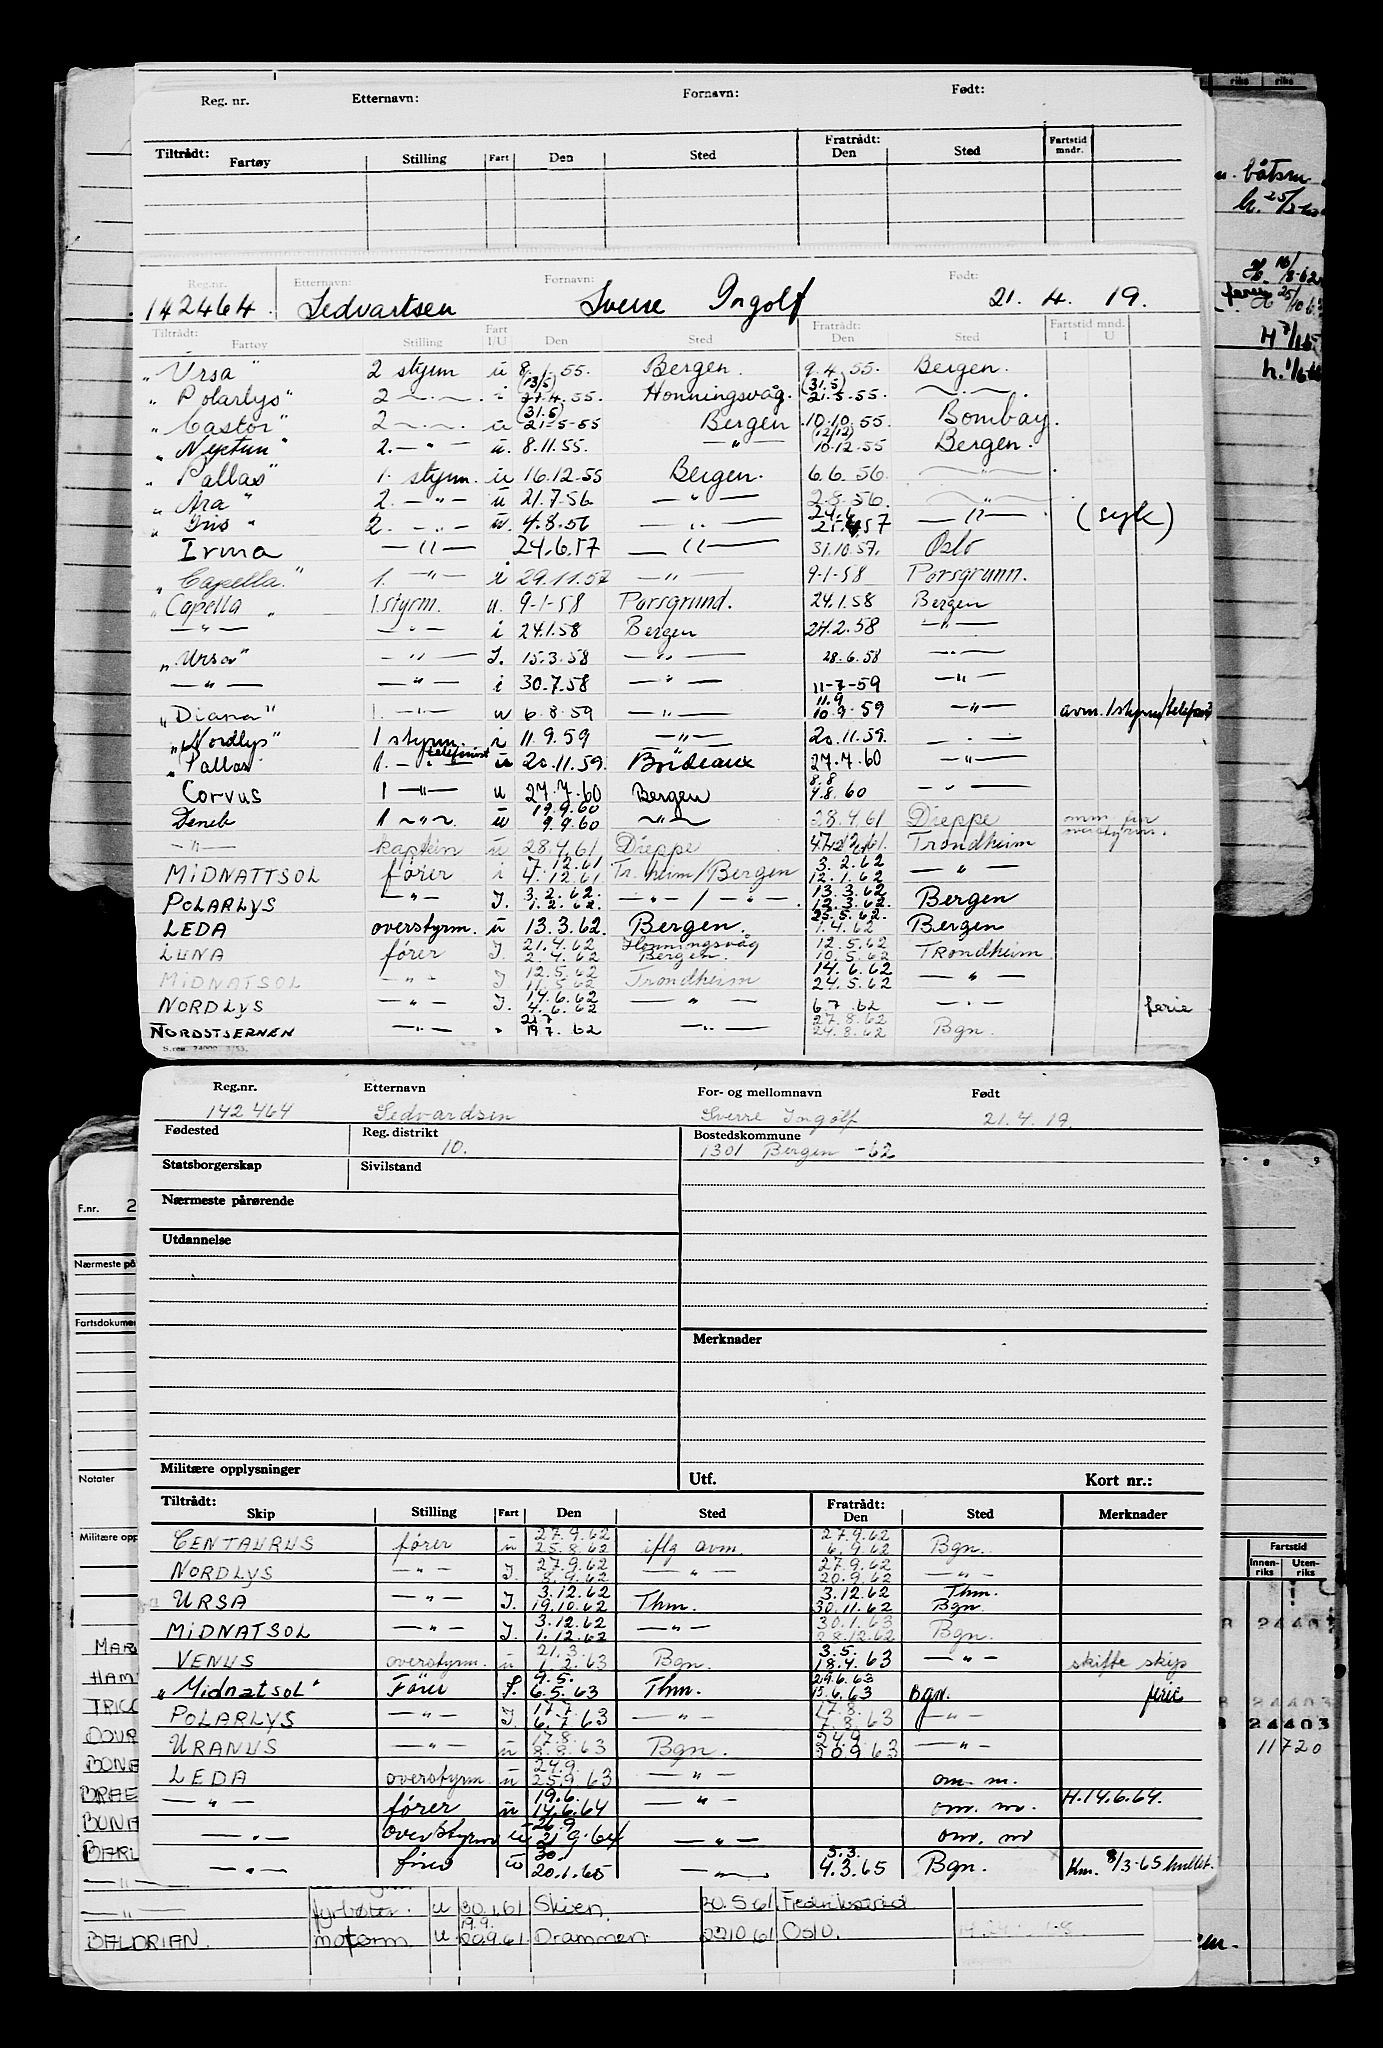 Reg. nr. Etternavn: Fornavn: Født:
Tiltrådt: Fratrådt: Fartstid mndr.
Fartøy Stilling Fart Den Sted Den Sted
n. båtsm
Reg.nr. Etternavn: Fornavn: Født:
142464. Sedvartsen Sverre Ingolf 21. 4. 19.
Tiltrådt: Fart Fratrådt: Fartstid mnd.
Fartøy Stilling I/U Den Sted Den Sted I U
"Ursa" 2 styrm u 8.1.55. Bergen. 9.4.55. Bergen.
(13/5) (31.5)
"Polarlys" 2 —.— i 27.4.55. Honningsvåg. 21.5.55. —.—.
(31.5)
"Castor" 2 —.— u 21-5-55 Bergen 10.10.55 Bombay.
(12/12)
"Neptun" 2. —"— u. 8.11.55. —"— 10.12.55 Bergen.
"Pallas" 1. styrm. u 16.12-55 Bergen. 6.6.56. —"—
"Ara" 2. —"— u 21.7-56 —"— 2.8.56. —"—
24.6
"Iris" 2. —.— u. 4.8.56 —"— 21.4.57 —"— (syk)
Irma —"— 24.6.57 —"— 31.10.57. Oslo
"Capella." 1. —"— i 29.11.57 —"— 9-1-58 Porsgrunn.
"Capella" 1 styrm. u. 9-1-58 Porsgrund. 24.1.58 Bergen
—"— —"— i 24.1.58 Bergen 24.2.58 —"—
"Ursa" —"— I. 15.3.58 —"— 28.6.58 —"—
—"— —"— i 30.7.58 —"— 11-7-59 —"—
11.9
"Diana" 1. —"— u 6.8.59 —"— 10.9.59 —"— avm. 1 styrm/telefonist
"Nordlys" 1 styrm. i 11.9.59 —"— 20.11.59. —.—
telefonist
"Pallas. 1. —"— u 20.11.59. Bordeaux 27.7.60 —"—
8.8
Corvus 1 —"— u 27.7.60 Bergen 4.8.60 —"—
19.9.60
Deneb 1 —"— u 9.9.60 —"— 28.4.61 Dieppe
—"— kaptein u 28.4.61 Dieppe Trondheim
7.12.61 3.2.62
MIDNATTSOL fører i 4.12.61 Tr.heim/Bergen 12.1.62 —"—
3.2.62. 13.3.62
POLARLYS —"— I. 1.2.62. —"—/—"—. 12.3.62 Bergen
25.5.62.
LEDA overstyrm. u 13.3.62. Bergen. 1.4.62 Bergen
21.4.62 Honningsvåg 12.5.62
LUNA fører I. 2.4.62 Bergen. 10.5.62 TRondheim
12.5.62 14.6.62
MIDNATSOL —"— I 11.5.62 Trondheim 24.5.62 —"—
14.6.62
NORDLYS —"— I. 4.6.62 —"— 6.7.62 —"— ferie
21.7 27.8.62
NORDSTJERNEN —"— " 19.7.62 —"— 24.8.62 Bgn.
Reg.nr. Etternavn For- og mellomnavn Født
142464 Sedvardsen Sverre Ingolf 21.4.19
Fødested Reg. distrikt Bostedskommune
10. 1301 Bergen -62
Statsborgerskap Sivilstand
Nærmeste pårørende
Utdannelse
Merknader
Militære opplysninger Utf. Kort nr.:
Tiltrådt: Fratrådt:
Skip Stilling Fart Den Sted Den Sted Merknader
27.9.62 27.9.62
CENTAURUS fører u 25.8.62 iflg avm. 6.9.62 Bgn.
27.9.62 27.9.62
NORDLYS —"— I. 8.9.62 —"— 20.9.62 —"—
3.12.62 3.12.62 Thm.
URSA —"— I 19.10.62 Thm. 30.11.62 Bgn.
3.12.62 30.1.63
MIDNATSOL —"— I. 1.12.62 —"— 28.12.62 Bgn.
21.3. 3.5.
VENUS overstyrm. u 1.2.63 Bgn. 18.4.63 —"— skifte skip
9.5. 29.6.63
"Midnatsol" Fører I. 6.5.63 Thm. 15.6.63 Bgn. ferie
17.7 17.8.
POLARLYS —"— I. 6.7.63 —"— 7.8.63 —"—
17.8. 24.9.
URANUS —"— u 8.8.63 Bgn. 20.9.63 —"—
24.9.
LEDA overstyrm. u 25.9.63 —"— om. m.
19.6.
—"— fører u 14.6.64 —"— om. m. H.14.6.64.
26.9
—"— overstyrm u 21.9.64 —"— om. m
30.1 5.3.
—"— fører u 20.1.65 —"— 4.3.65 Bgn. Km. 8/3-65 hullet.
fyrbøter. u 30.1.61 Skien. 30.5.61 Fredrikstad
19.9.
BALDRIAN. motorm u 20.9.61 Drammen. 22.10.61 Oslo.
F.nr. 2
Nærmeste på
Fartsdokumen
Notater
Militære opp
Fartstid
Innenriks Utenriks
24403
24403
11720